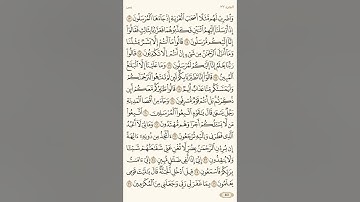 يس
وَٱضْرِبْ لَهُم مَّثَلًا أَصْحَٰبَ ٱلْقَرْيَةِ إِذْ جَآءَهَا ٱلْمُرْسَلُونَ ١٣
إِذْ أَرْسَلْنَآ إِلَيْهِمُ ٱثْنَيْنِ فَكَذَّبُوهُمَا فَعَزَّزْنَا بِثَالِثٍ فَقَالُوٓا۟
إِنَّآ إِلَيْكُم مُّرْسَلُونَ ١٤ قَالُوا۟ مَآ أَنتُمْ إِلَّا بَشَرٌ مِّثْلُنَا
وَمَآ أَنزَلَ ٱلرَّحْمَٰنُ مِن شَىْءٍ إِنْ أَنتُمْ إِلَّا تَكْذِبُونَ ١٥
قَالُوا۟ رَبُّنَا يَعْلَمُ إِنَّآ إِلَيْكُمْ لَمُرْسَلُونَ ١٦ وَمَا عَلَيْنَآ إِلَّا ٱلْبَلَٰغُ
ٱلْمُبِينُ ١٧ قَالُوٓا۟ إِنَّا تَطَيَّرْنَا بِكُمْ لَئِن لَّمْ تَنتَهُوا۟ لَنَرْجُمَنَّكُمْ
وَلَيَمَسَّنَّكُم مِّنَّا عَذَابٌ أَلِيمٌ ١٨ قَالُوا۟ طَٰٓئِرُكُم مَّعَكُمْ أَئِن
ذُكِّرْتُم بَلْ أَنتُمْ قَوْمٌ مُّسْرِفُونَ ١٩ وَجَآءَ مِنْ أَقْصَا ٱلْمَدِينَةِ
رَجُلٌ يَسْعَىٰ قَالَ يَٰقَوْمِ ٱتَّبِعُوا۟ ٱلْمُرْسَلِينَ ٢٠ ٱتَّبِعُوا۟
مَن لَّا يَسْـَٔلُكُمْ أَجْرًا وَهُم مُّهْتَدُونَ ٢١ وَمَا لِىَ لَآ أَعْبُدُ
ٱلَّذِى فَطَرَنِى وَإِلَيْهِ تُرْجَعُونَ ٢٢ ءَأَتَّخِذُ مِن دُونِهِۦٓ ءَالِهَةً
إِن يُرِدْنِ ٱلرَّحْمَٰنُ بِضُرٍّ لَّا تُغْنِ عَنِّى شَفَٰعَتُهُمْ شَيْـًٔا
وَلَا يُنقِذُونِ ٢٣ إِنِّىٓ إِذًا لَّفِى ضَلَٰلٍ مُّبِينٍ ٢٤ إِنِّىٓ ءَامَنتُ
بِرَبِّكُمْ فَٱسْمَعُونِ ٢٥ قِيلَ ٱدْخُلِ ٱلْجَنَّةَ قَالَ يَٰلَيْتَ قَوْمِى
يَعْلَمُونَ ٢٦ بِمَا غَفَرَ لِى رَبِّى وَجَعَلَنِى مِنَ ٱلْمُكْرَمِينَ ٢٧